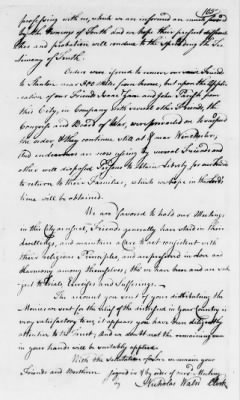 165
professing with us, which we are informed are much favored
by the Seminary of Truth and we hope their present difficul
ties and probation will conduce to the spreading the Tes
timony of Truth.
Orders were issued to remove our Friends
to Staunton near 200 miles from home, but upon the appli
cation of our Friend Isaac Zane and John Parrish from
this City, in Company with several other Friends, the
Congress and Board of War, were prevailed on to suspend
the order, & they continue still at & near Winchester,
and endeavours are now using by several Friends and
other well disposed Persons to obtain Liberty for
to return to their Families, which we hope in
time will be obtained.
We are favoured to hold our Meetings
in this City as usual, Friends generally have staid in their
dwellings, and maintain a Care to act consistent with
their Religious Principles, and are preserved in Love and
Harmony among themselves, tho we have been and are sub
ject to Trials, Exercises and Sufferings.
The account you sent of your distributing the
Monies we sent for the relief of the distressed in your Country is
very satisfactory to us, it appears you have been diligently
attentive to the Trust, And we doubt not the remaining sum
in your hands will be suitably applied.
With the Salutation of Love we remain your
Friends and Brethren Signed in & by order of said Meeting
by Nicholas Waln Clerk